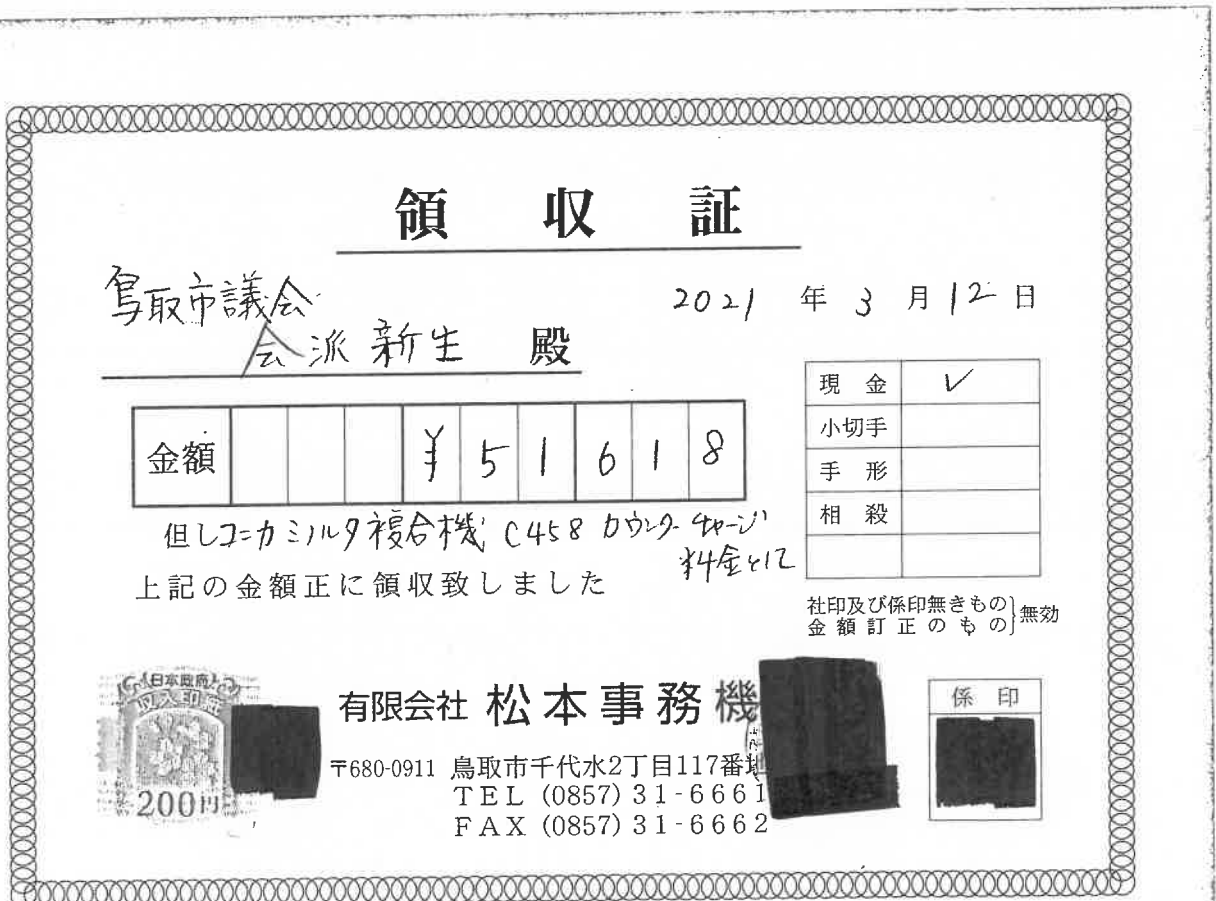 領収証
鳥取市議会
2021年3月12日
会派新生 殿
現金 ✓
小切手
手形
相殺
金額 ¥51618
但しコニカミノルタ複合機 C458 カウンターチャージ
料金として
上記の金額正に領収致しました
社印及び係印無きもの
金額訂正のもの
無効
日本政府
収入印紙
200円
有限会社 松本事務機
係印
〒680-0911 鳥取市千代水2丁目117番地
TEL (0857) 31-6661
FAX (0857) 31-6662